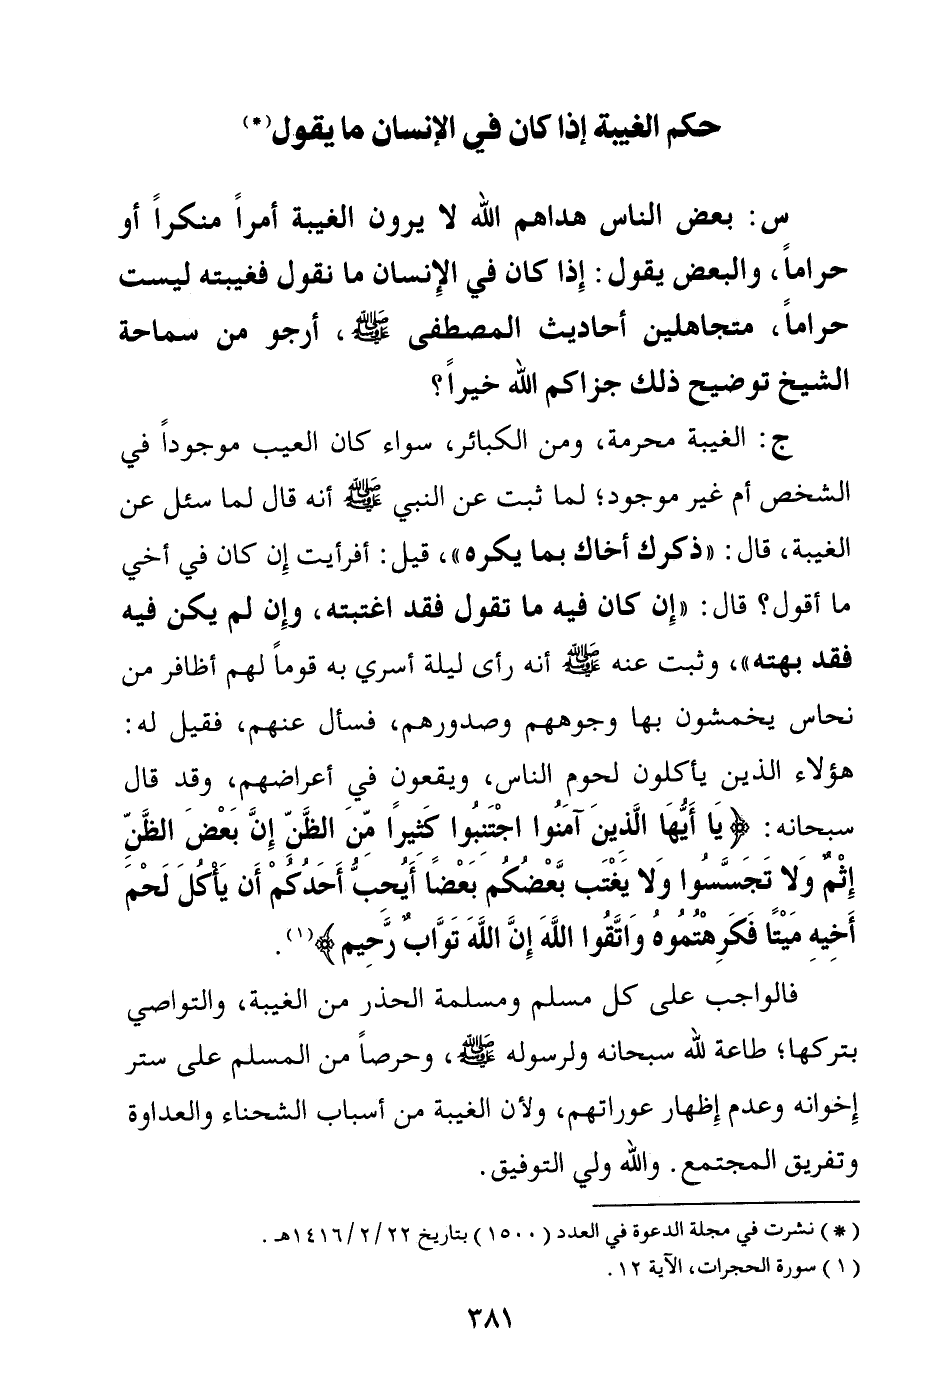 حكم الغيبة إذا كان في الإنسان ما يقول(*)
س: بعض الناس هداهم الله لا يرون الغيبة أمراً منكراً أو
حراماً، والبعض يقول: إذا كان في الإنسان ما نقول فغيبته ليست
حراماً، متجاهلين أحاديث المصطفى ﷺ، أرجو من سماحة
الشيخ توضيح ذلك جزاكم الله خيراً؟
ج: الغيبة محرمة، ومن الكبائر، سواء كان العيب موجوداً في
الشخص أم غير موجود؛ لما ثبت عن النبي ﷺ أنه قال لما سئل عن
الغيبة، قال: «ذكرك أخاك بما يكره»، قيل: أفرأيت إن كان في أخي
ما أقول؟ قال: «إن كان فيه ما تقول فقد اغتبته، وإن لم يكن فيه
فقد بهته»، وثبت عنه ﷺ أنه رأى ليلة أسري به قوماً لهم أظافر من
نحاس يخمشون بها وجوههم وصدورهم، فسأل عنهم، فقيل له:
هؤلاء الذين يأكلون لحوم الناس، ويقعون في أعراضهم، وقد قال
سبحانه: ﴿يَا أَيُّهَا الَّذِينَ آمَنُوا اجْتَنِبُوا كَثِيرًا مِّنَ الظَّنِّ إِنَّ بَعْضَ الظَّنِّ
إِثْمٌ وَلَا تَجَسَّسُوا وَلَا يَغْتَب بَّعْضُكُم بَعْضًا أَيُحِبُّ أَحَدُكُمْ أَن يَأْكُلَ لَحْمَ
أَخِيهِ مَيْتًا فَكَرِهْتُمُوهُ وَاتَّقُوا اللَّهَ إِنَّ اللَّهَ تَوَّابٌ رَّحِيم﴾(١).
فالواجب على كل مسلم ومسلمة الحذر من الغيبة، والتواصي
بتركها؛ طاعة لله سبحانه ولرسوله ﷺ، وحرصاً من المسلم على ستر
إخوانه وعدم إظهار عوراتهم، ولأن الغيبة من أسباب الشحناء والعداوة
وتفريق المجتمع. والله ولي التوفيق.
(*) نشرت في مجلة الدعوة في العدد (١٥٠٠) بتاريخ ١٤١٦/٢/٢٢هـ.
(١) سورة الحجرات، الآية ١٢.
٣٨١